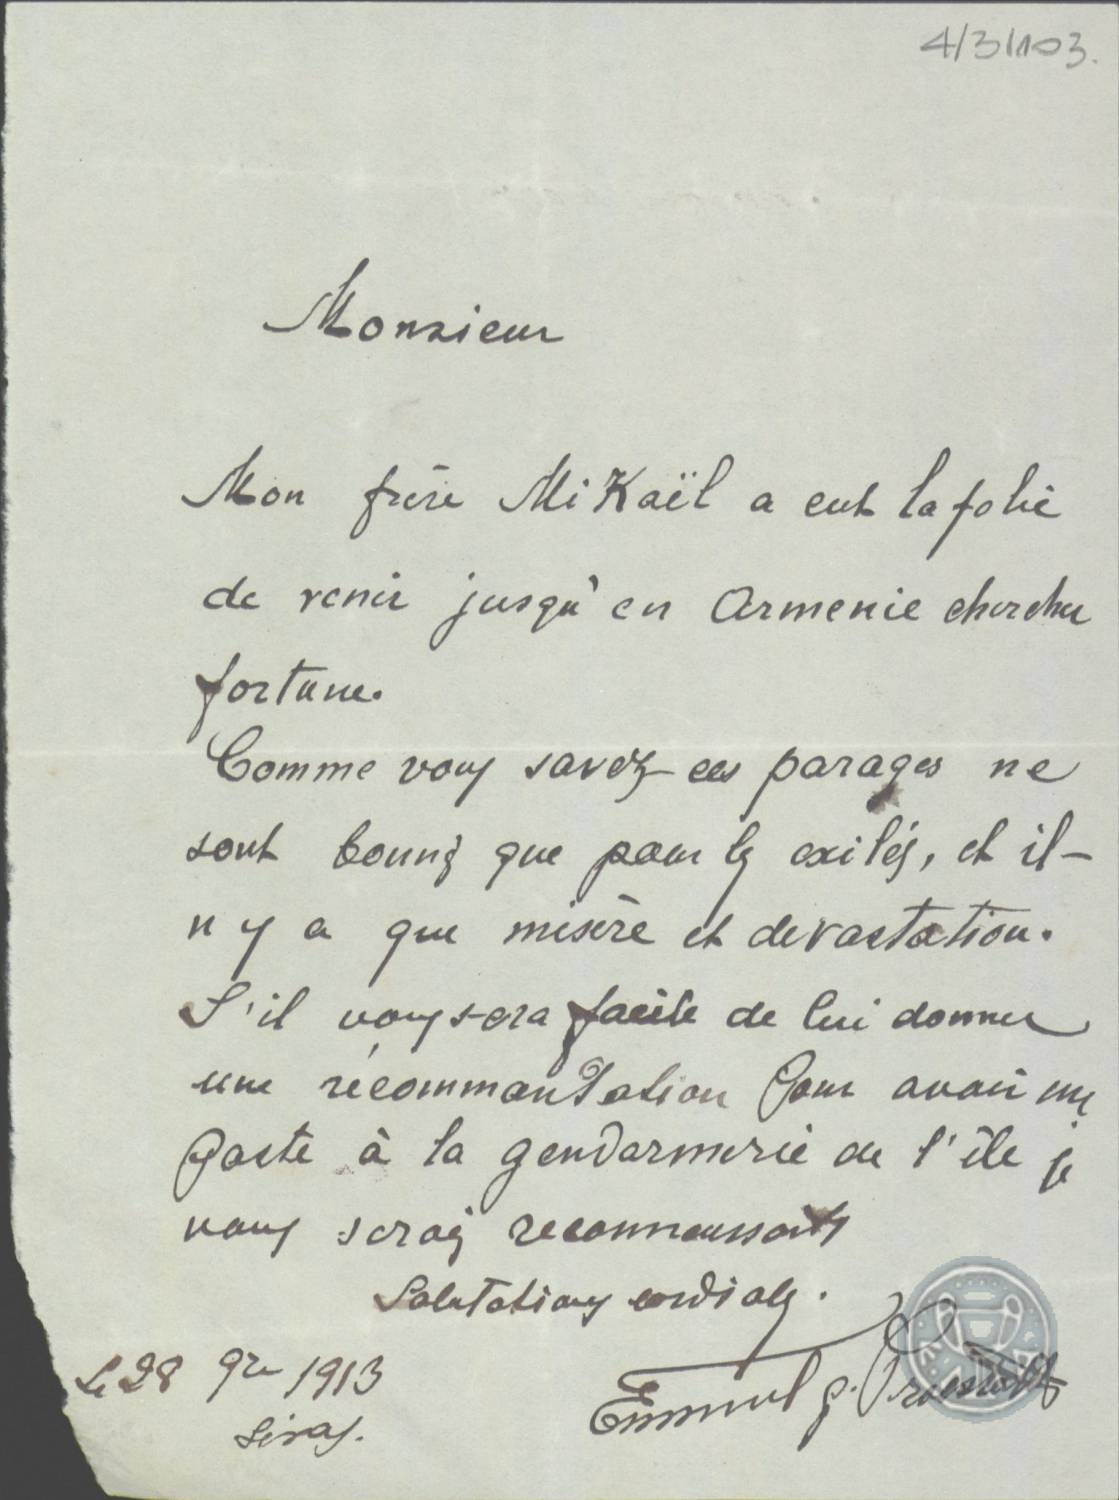 4/3/103.
Monsieur
Mon frère MiKaël a eut la folie
de venir jusqu'en Armenie chercher
fortune.
Comme vous savez ces parages ne
sont bouns que pour les exilés, et il-
n y a que misère et devastation.
S'il vous sera facile de lui donner
une récommandation pour avoir une
poste à la gendarmerie de l'île je
vous serais reconnaissants
Salutations cordiales.
Le 28 9re 1913
Sivas.
Emmnul g.